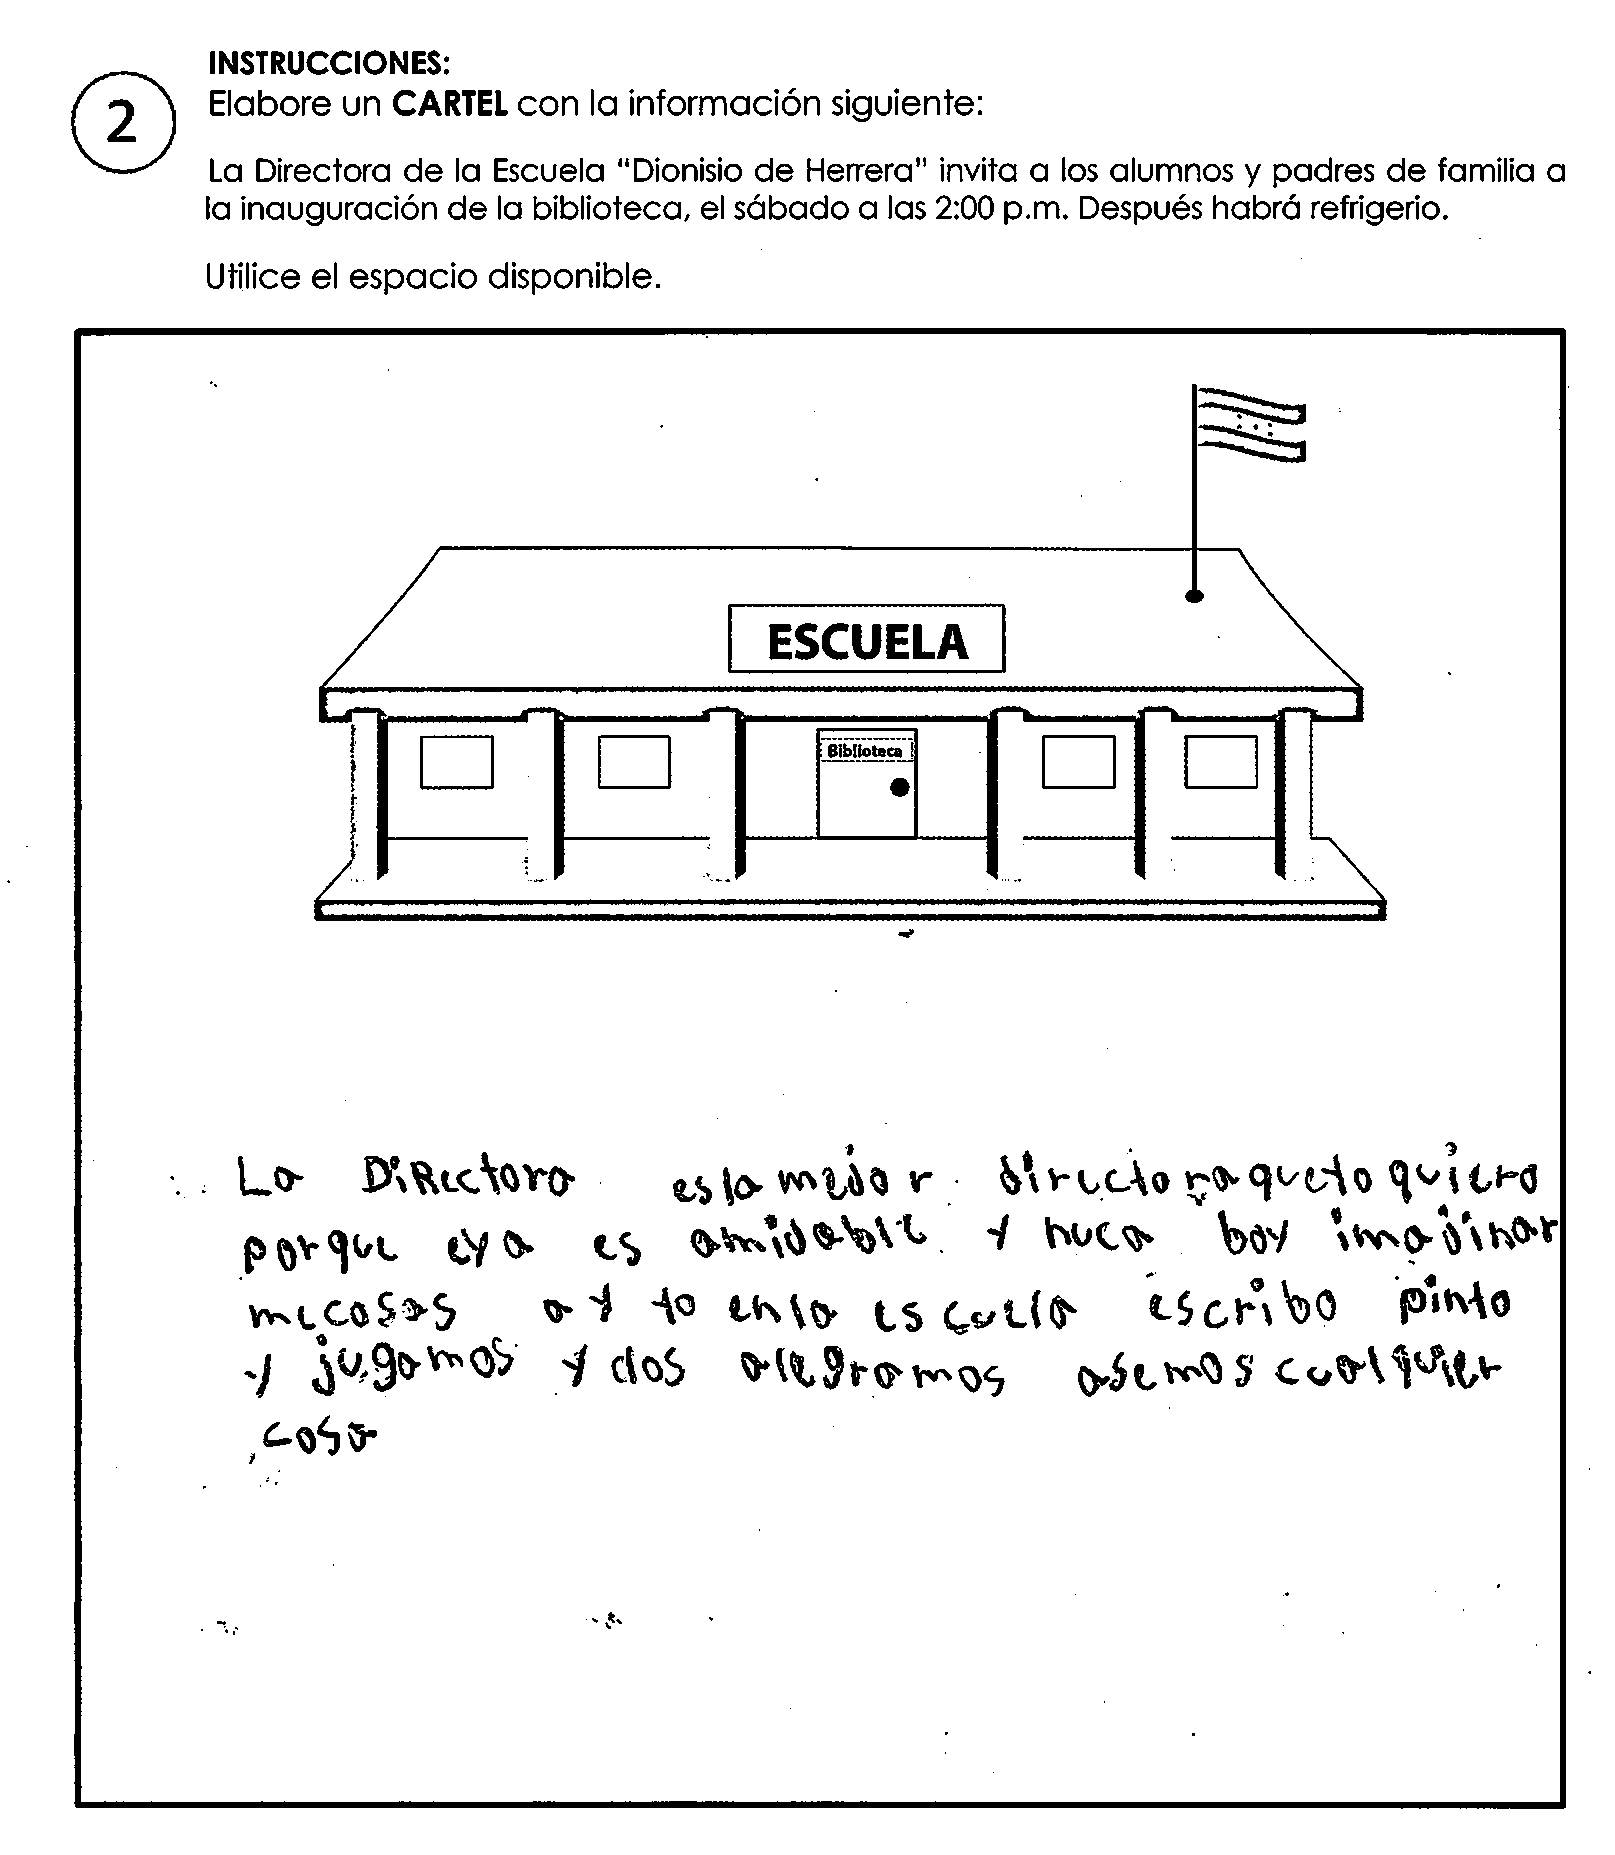 INSTRUCCIONES:
2
Elabore un CARTEL con la información siguiente:
La Directora de la Escuela "Dionisio de Herrera" invita a los alumnos y padres de familia a
la inauguración de la biblioteca, el sábado a las 2:00 p.m. Después habrá refrigerio.
Utilice el espacio disponible.
ESCUELA
Biblioteca
La DiRectora es la mejor directora que yo quiero
porque eya es amidable y nuca boy imajinar
mecosas a y yo en la escuela escribo pinto
y jugamos y dos alegramos asemos cualquier
cosa